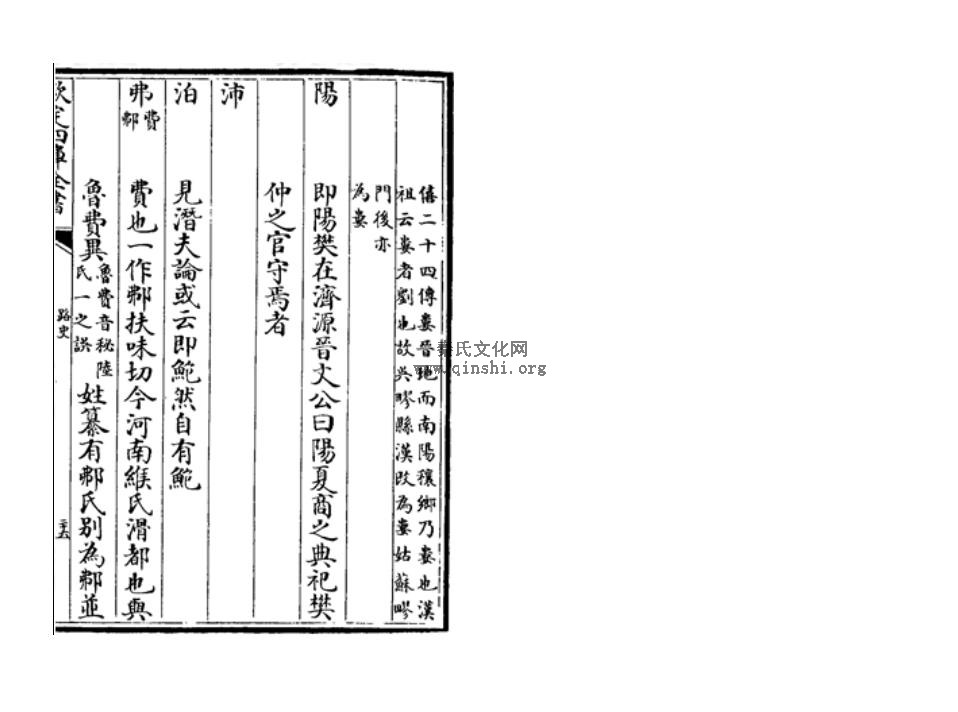 僖二十四傳婁晉地而南陽穰鄉乃婁也漢
祖云婁者劉也故吳㗕縣漢改為婁姑蘇㗕
門後亦
為婁
陽 即陽樊在濟源晉文公曰陽夏商之典祀樊
仲之官守焉者
沛
泊 見潛夫論或云即鮑然自有鮑
弗 費鄪 費也一作鄪扶味切今河南緱氏滑都也與
魯費異 魯費音秘陸氏一之誤 姓纂有鄪氏别為鄪並
欽定四庫全書
路史
二十六
秦氏文化网
www.qinshi.org